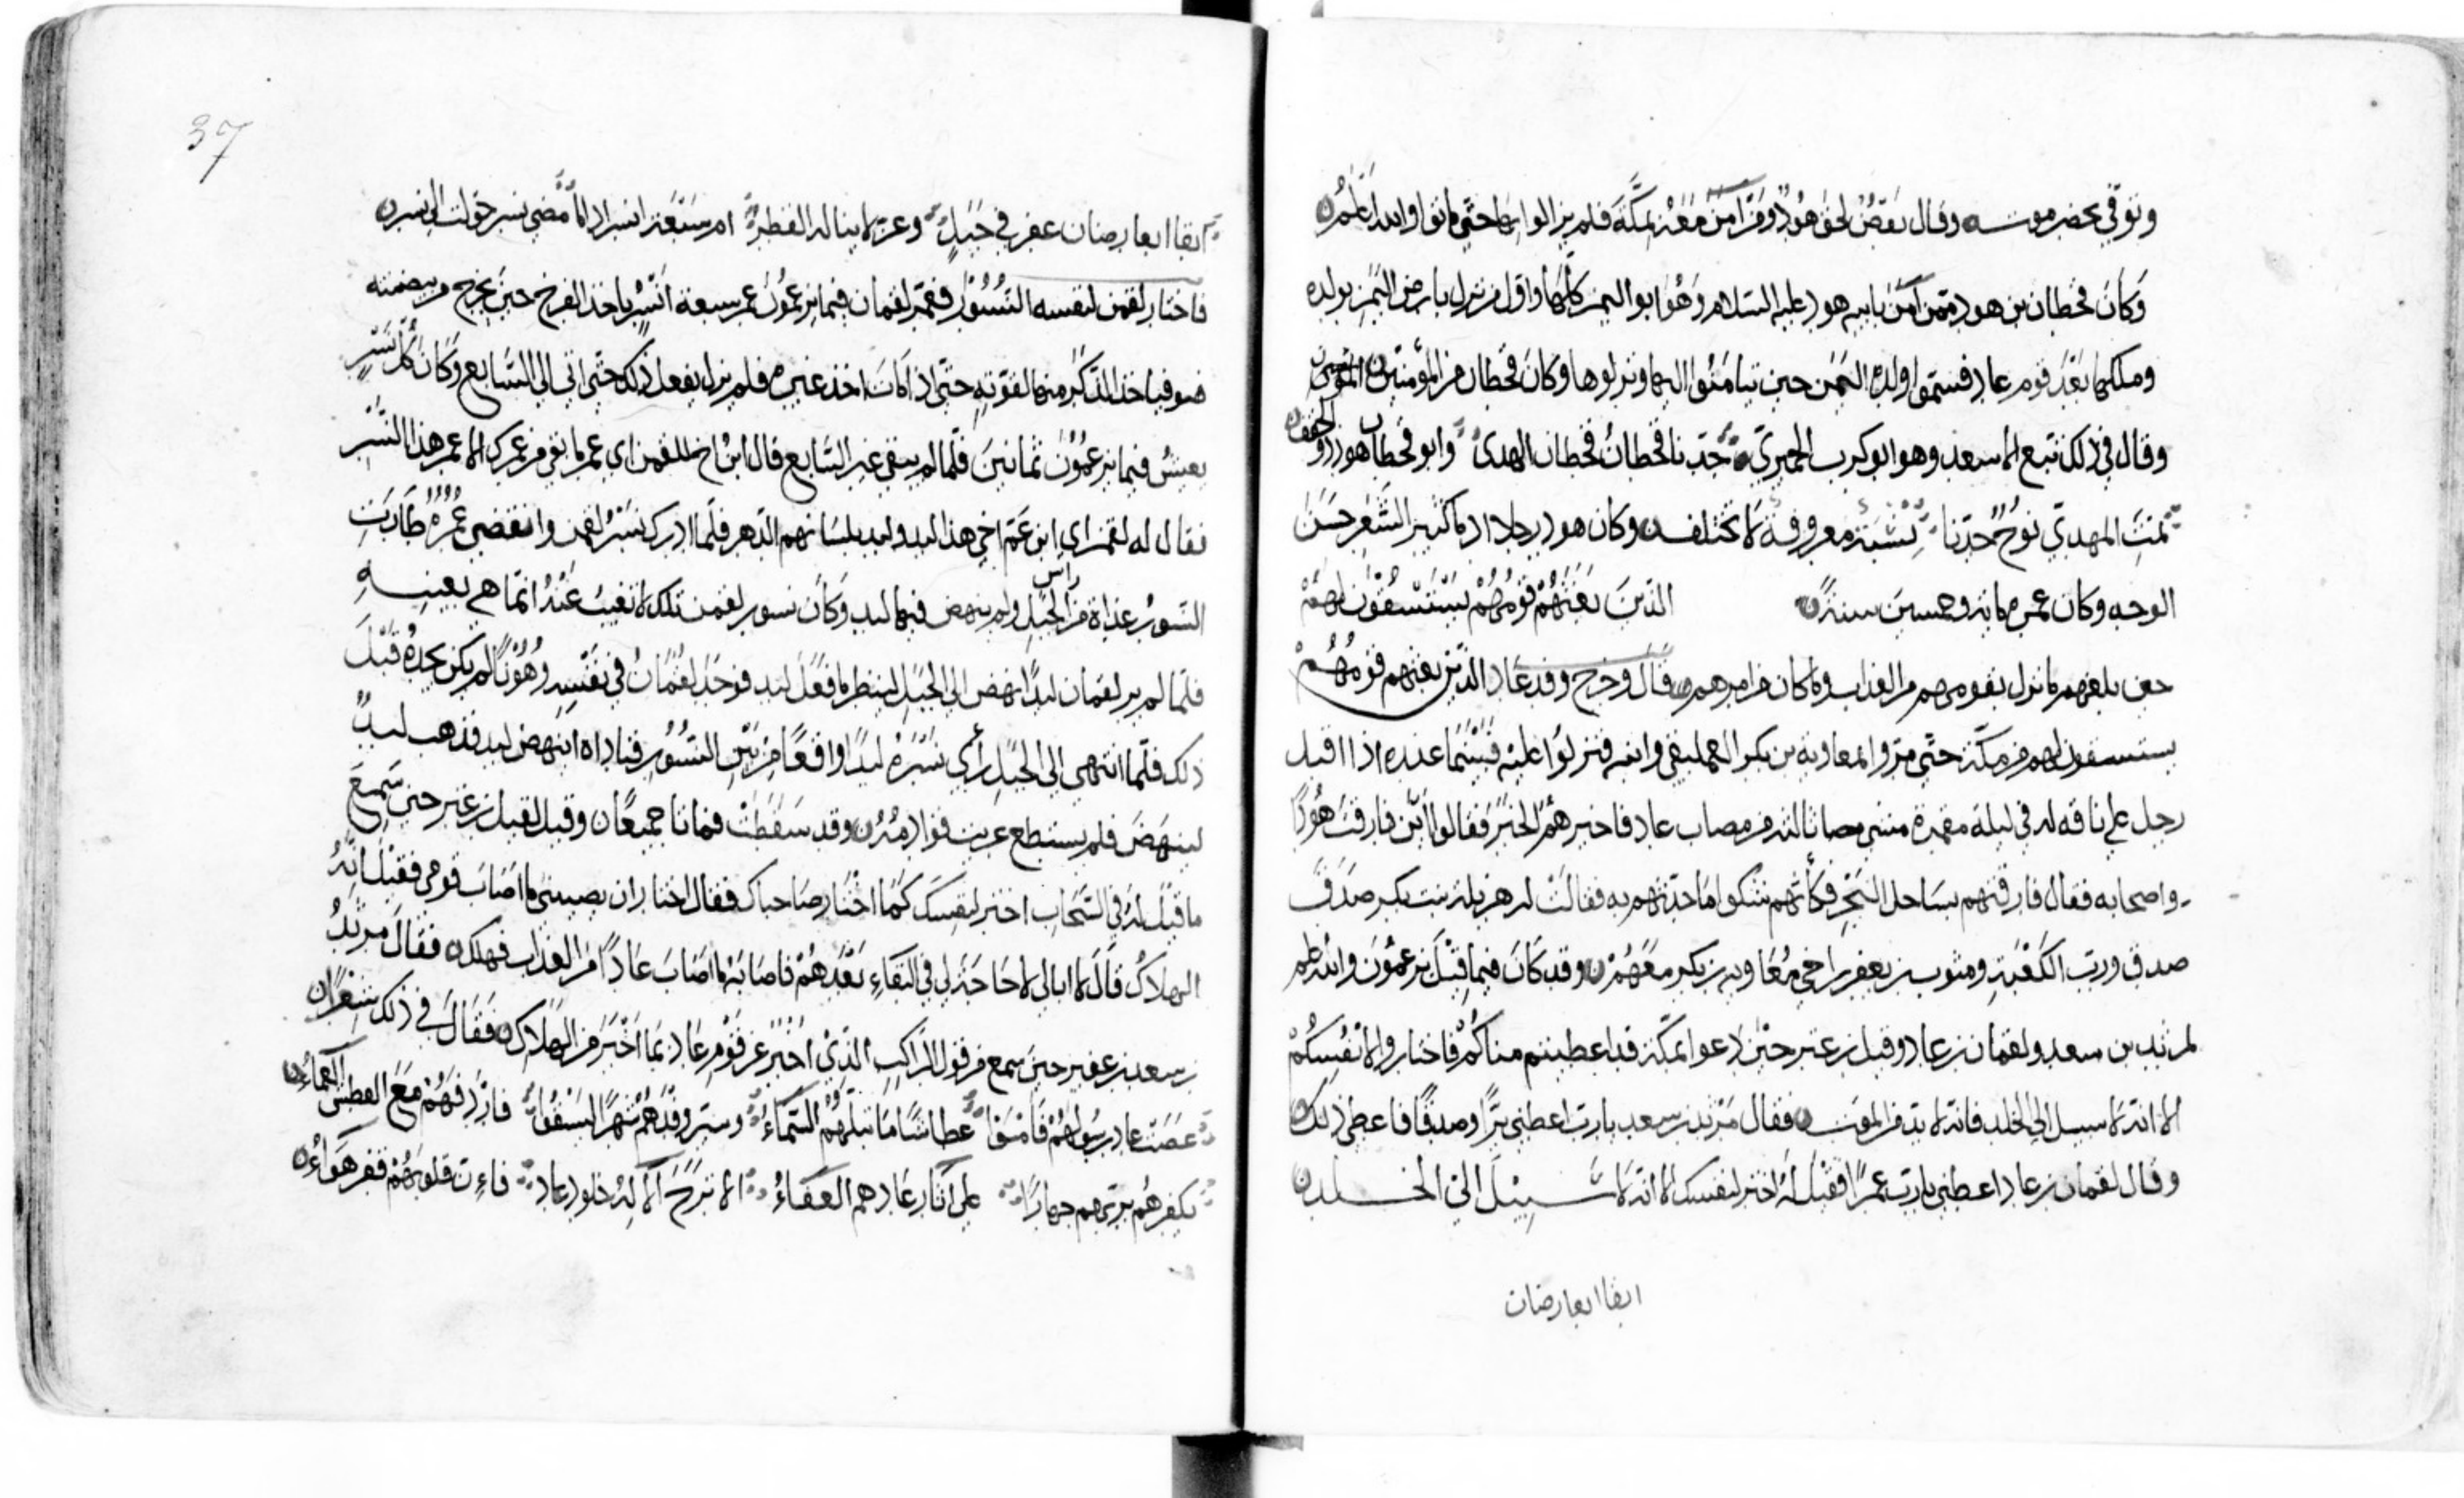 وتوفي بحضرموت وقال بعض لحق هود ومن آمن معه بمكة فلم يزالوا بها حتى ماتوا والله اعلم
وكان قحطان بن هود ممن آمن بابيه هود عليه السلام وهو ابو اليمن كلها واول من نزل بارض اليمن بولده
وملكها بعد قوم عاد فسموا ولده اليمن حين تيامنوا اليها ونزلوها وكان قحطان من المؤمنين
وقال في ذلك تبع الاسعد وهو ابو كرب الحميري جدنا قحطان قحطان الهدى وابو قحطان هود ذو الحقف
ثمت المهدي نوح جدنا نسبة معروفة لا تختلف وكان هود رجلا ادما كثير الشعر حسن
الوجه وكان عمره مايه وخمسين سنة الذين بعثهم قومهم يستسقون لهم
حين بلغهم ما نزل بقومهم من العذاب وما كان من امرهم قال وخرج وفد عاد الذين بعثهم قومهم
يستسقون لهم من مكة حتى مروا لمعاوية بن بكر العمليقي وابنه فنزلوا عليه فبينما عنده اذا اقبل
رجل على ناقه له في ليلة مقمرة منسى مصا ثالثه من مصاب عاد فاخبرهم الخبر فقالوا اين فارقت هودا
واصحابه فقال فارقتهم بساحل البحر فكأنهم شكوا ما حدثهم به فقالت له هزيلة بنت بكر صدق
صدق ورب الكعبة ومثوب بن يعفر بن اخي معاويه بن بكر معهم وقد كان فيما قيل يزعمون والله اعلم
لمرثد بن سعد ولقمان بن عاد وقيل بن عتر حين دعوا بمكة قد اعطيتم مناكم فاختاروا لانفسكم
الا انه لا سبيل الى الخلد فانه لا بد من الموت فقال مرثد بن سعد يا رب اعطني برا وصدقا فاعطي ذلك
وقال لقمان بن عاد اعطني يا رب عمرا فقيل له اختر لنفسك الا انه لا سبيل الى الخلد
ابقا ابعار ضان
37
ابقا ابعار ضان عفر في جبل وعر لا يناله القطر ام سبعة انسر اذا مضى نسر حولت الى نسر
فاختار لقمن لنفسه النسور فعمر لقمان فيما يزعمون عمر سبعة انسر ياخذ الفرخ حين يخرج من بيضته
فياخذ الذكر منها لقوته حتى اذا مات اخذ غيره فلم يزل يفعل ذلك حتى اتى الى السابع وكان كل نسر
يعيش فيما يزعمون ثمانين فلما لم يبق غير السابع قال ابن اخ للقمن اي عم ما بقي من عمرك الا عمر هذا النسر
فقال له لقمن اي ابن عم اخي هذا لبد ولبد بلسانهم الدهر فلما ادرك نسر لقمن وانقضى عمره طارت
النسور غداة من راس الجبل ولم ينهض فيها لبد وكان نسور لقمن تلك لا تغيب عنه انما هي بعينه
فلما لم ير لقمان لبدا نهض الى الجبل لينظر ما فعل لبد فوجد لقمان في نفسه وهونا لم يكن يجده قبل
ذلك فلما انتهى الى الجبل رأى نسره لبدا واقعا من بين النسور فناداه انهض لبد فذهب لبد
لينهض فلم يستطع عريت قوادمه وقد سقطت فماتا جميعا وقيل لقيل بن عتر حين سمع
ما قيل له في السحاب اختر لنفسك كما اختار صاحباك فقال اختار ان يصيبني ما اصاب قومي فقيل انه
الهلاك قال لا ابالي لا حاجة لي في البقاء بعدهم فاصابه ما اصاب عادا من العذاب فهلك فقال مرثد
بن سعد بن عفير حين سمع من قول الراكب الذي اخبر عن قوم عاد بما اخبر من الهلاك فقال في ذلك شعرا
عصت عاد رسولهم فامسوا عطاشا ما تبلهم السماء وسير وفدهم شهرا ليسقوا فاردفهم مع العطش العماء
بكفرهم بربهم جهارا على آثار عادهم العفاء الا نزح الاله حلوم عاد فان قلوبهم قفر هواء